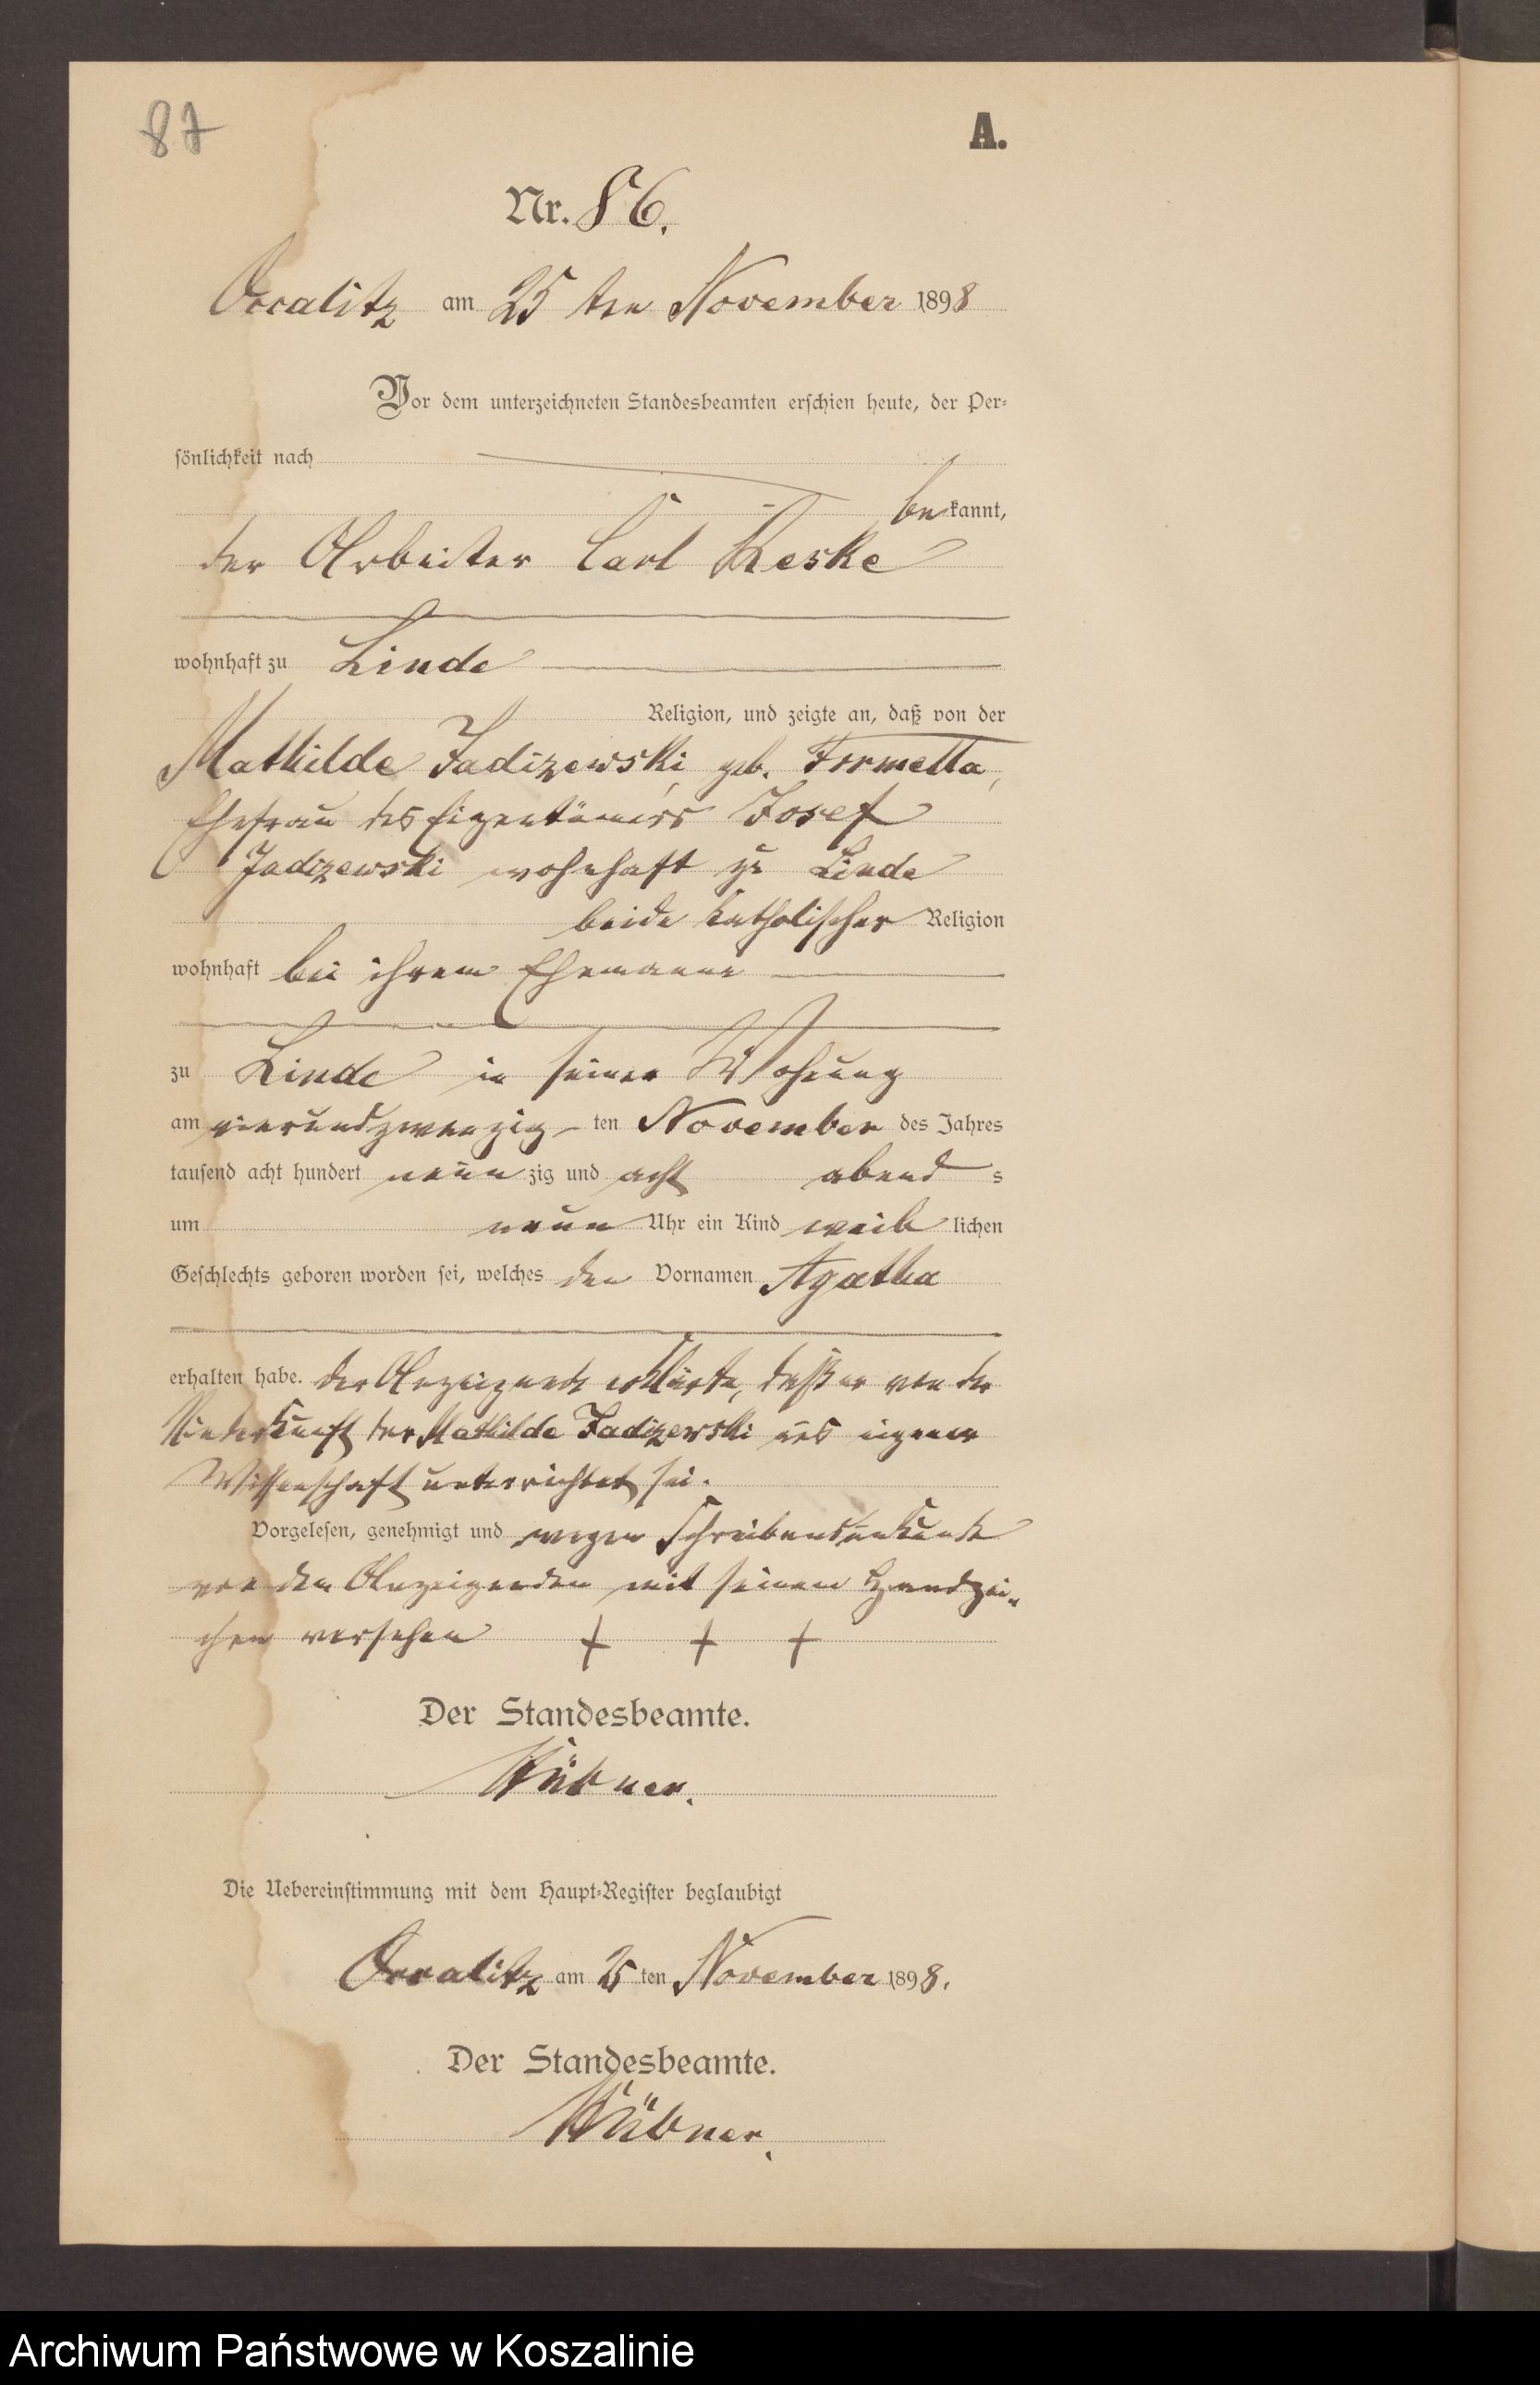 87
A.
Nr. 86.
Occalitz am 25 ten November 1898
Vor dem unterzeichneten Standesbeamten erschien heute, der Per-
sönlichkeit nach
bekannt,
der Arbeiter Carl Reske
wohnhaft zu Linde
Religion, und zeigte an, daß von der
Mathilde Jadizewski geb. Formella,
Ehefrau des Eigentümers Josef
Jadizewski wohnhaft zu Linde
beide katholischer Religion
wohnhaft bei ihrem Ehemanne
zu Linde in seiner Wohnung
am vierundzwanzig ten November des Jahres
tausend acht hundert neunzig und acht abends
um neun Uhr ein Kind weiblichen
Geschlechts geboren worden sei, welches den Vornamen Agatha
erhalten habe. Der Anzeigende erklärte, daß er von der
Niederkunft der Mathilde Jadizewski aus eigener
Wissenschaft unterrichtet sei.
Vorgelesen, genehmigt und wegen Schreibensunkunde
von dem Anzeigenden mit seinem Handzei-
chen versehen + + +
Der Standesbeamte.
Hübner.
Die Uebereinstimmung mit dem Haupt-Register beglaubigt
Occalitz am 25 ten November 1898.
Der Standesbeamte.
Hübner.
Archiwum Państwowe w Koszalinie